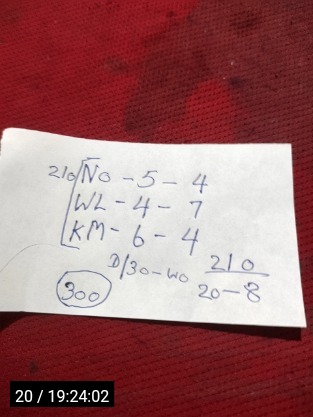 210 No - 5 - 4
WL - 4 - 7
KM - 6 - 4
D/30 - wo 210
20 - 8
300
20 / 19:24:02